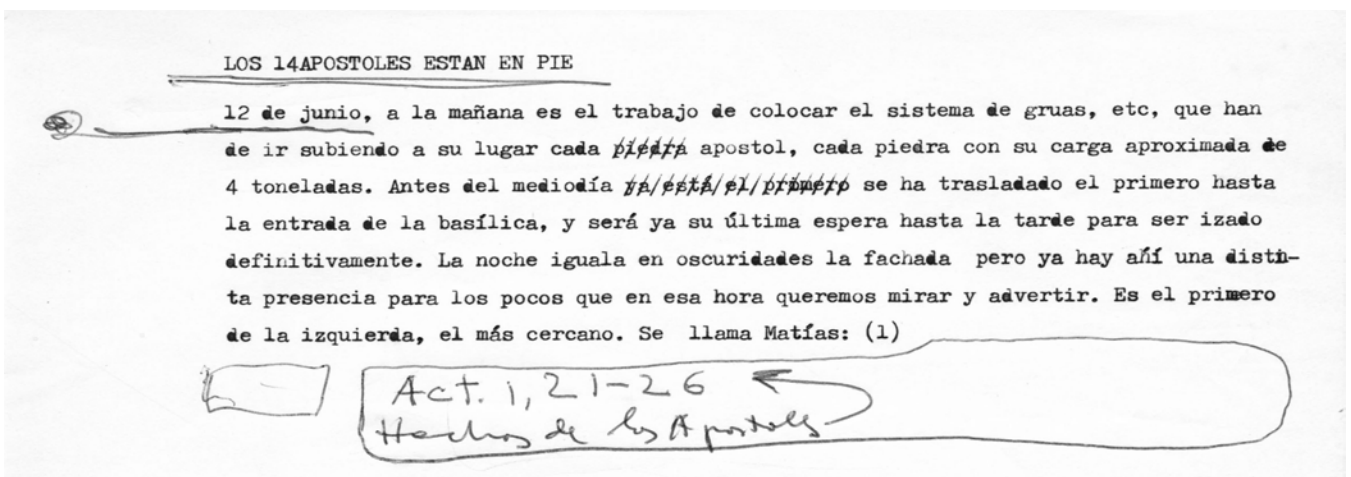 LOS 14APOSTOLES ESTAN EN PIE
12 de junio, a la mañana es el trabajo de colocar el sistema de gruas, etc, que han
de ir subiendo a su lugar cada piedra apostol, cada piedra con su carga aproximada de
4 toneladas. Antes del mediodía ya/está/el/primero se ha trasladado el primero hasta
la entrada de la basílica, y será ya su última espera hasta la tarde para ser izado
definitivamente. La noche iguala en oscuridades la fachada pero ya hay ahí una distin-
ta presencia para los pocos que en esa hora queremos mirar y advertir. Es el primero
de la izquierda, el más cercano. Se llama Matías: (1)
Act. 1, 21-26
Hechos de los Apostoles